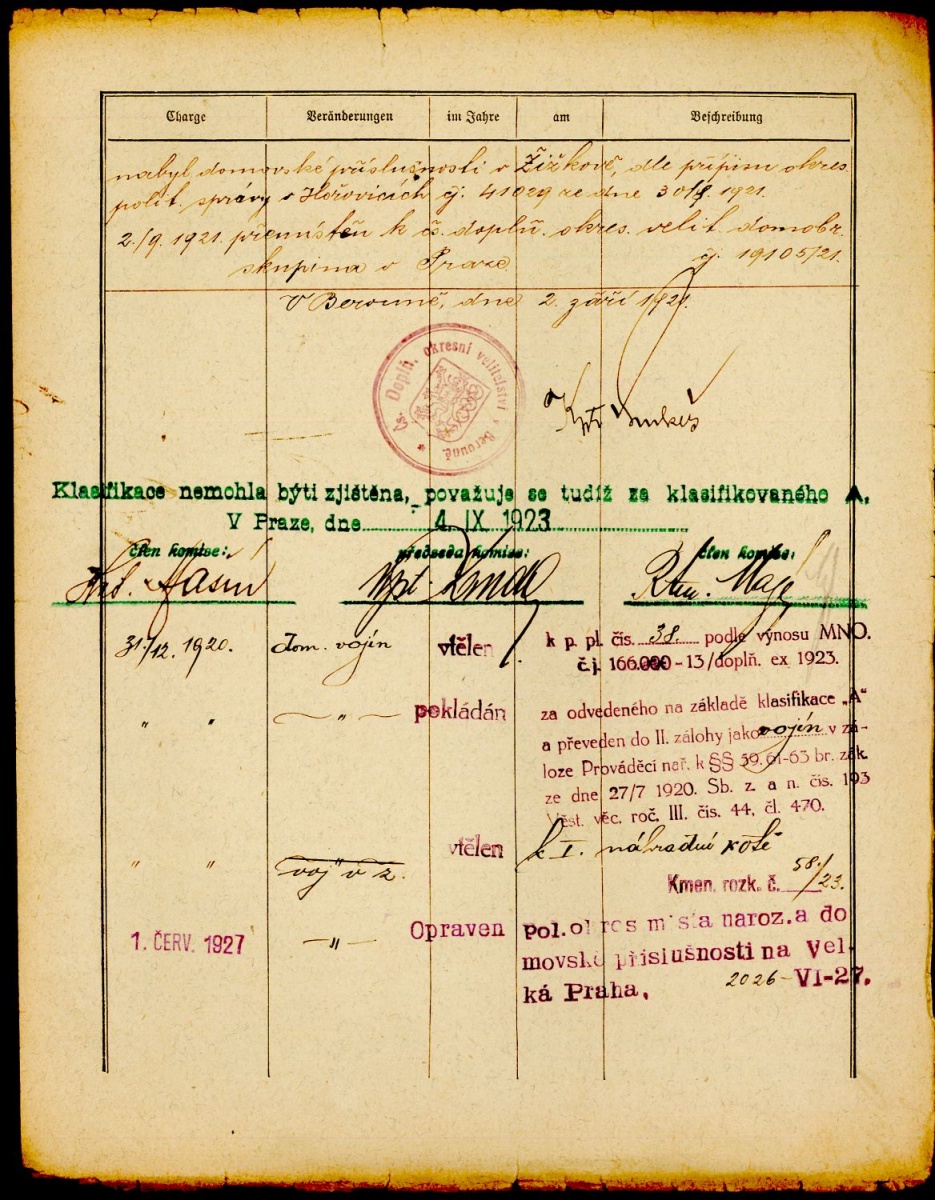 Charge Veränderungen im Jahre am Beschreibung
nabyl domovské příslušnosti v Žižkově, dle přípisu okres.
polit. správy v Hořovicích čj. 41029 ze dne 30/8. 1921.
2./9. 1921. přemístěn k čs. doplň. okres. velit. domobr.
skupina v Praze. čj. 19105/21.
V Berouně, dne 2. září 1921.
Čs. Doplň. okresní velitelství v Berouně. *
Kpt
Klasifikace nemohla býti zjištěna, považuje se tudíž za klasifikovaného A.
V Praze, dne 4. IX. 1923
člen komise: předseda komise: člen komise:
31./12. 1920. dom. vojín vtělen k p. pl. čís. 38. podle výnosu MNO.
č.j. 166.000-13/doplň. ex 1923.
" " — " — pokládán za odvedeného na základě klasifikace „A“
a převeden do II. zálohy jako vojín v zá-
loze Prováděcí nař. k §§ 59, 61-63 br. zák.
ze dne 27/7 1920. Sb. z. a n. čís. 193
Věst. věc. roč. III. čís. 44, čl. 470.
" " voj. v z. vtělen k I. náhradní rotě
Kmen. rozk. č. 58./23.
1. ČERV. 1927 — " — Opraven pol. okres místa naroz. a do
movské příslušnosti na Vel-
ká Praha. 2026-VI-27.